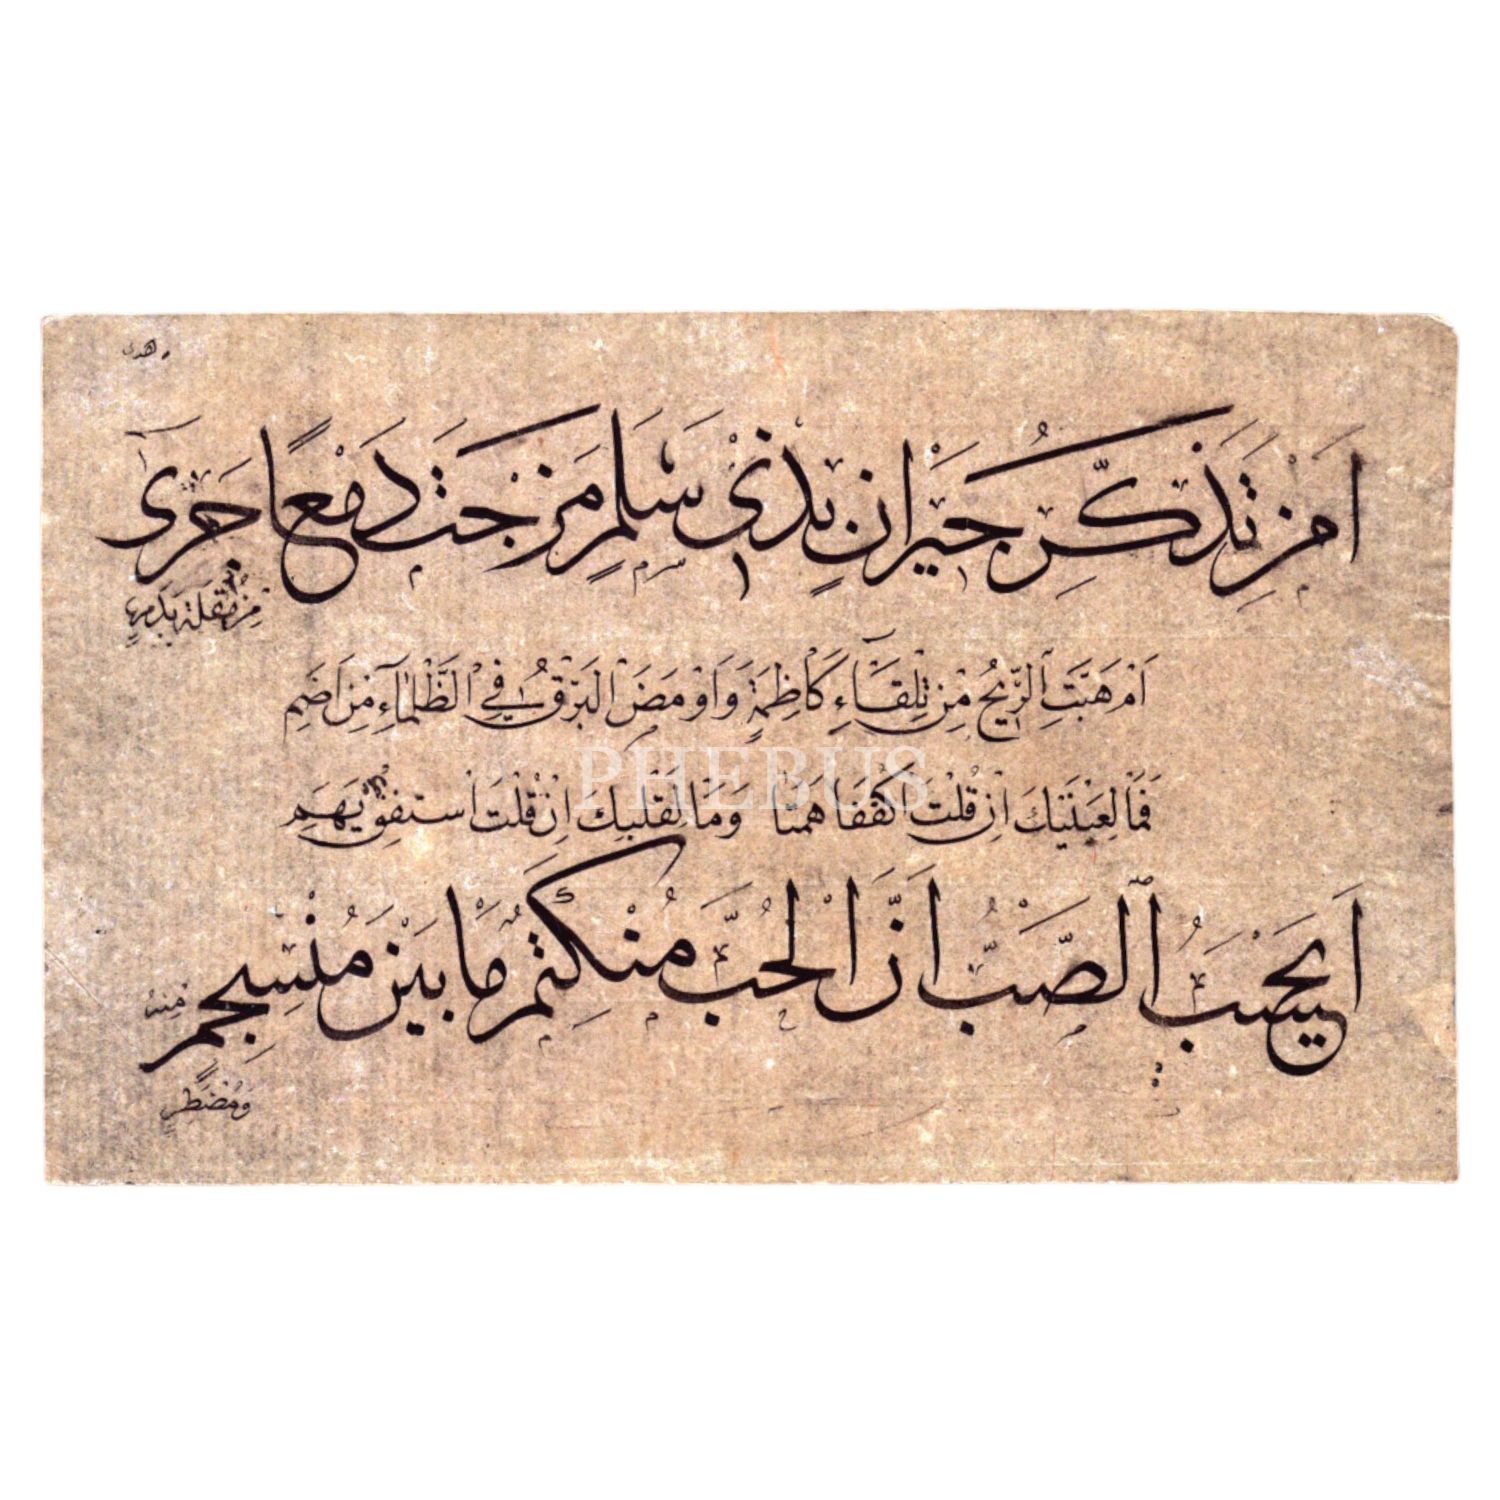 أَمِنْ تَذَكُّرِ جِيرَانٍ بِذِي سَلَمٍ مَزَجْتَ دَمْعًا جَرَى
مِنْ مُقْلَةٍ بِدَمٍ
أَمْ هَبَّتِ الرِّيحُ مِنْ تِلْقَاءِ كَاظِمَةٍ وَاَوْمَضَ الْبَرْقُ فِي الظَّلْمَاءِ مِنْ اِضَمِ
فَمَا لِعَيْنَيْكَ اِنْ قُلْتَ اكْفُفَا هَمَتَا وَمَا لِقَلْبِكَ اِنْ قُلْتَ اسْتَفِقْ يَهِمِ
PHEBUS
اَيَحْسَبُ الصَّبُّ اَنَّ الْحُبَّ مُنْكَتِمٌ مَا بَيْنَ مُنْسَجِمٍ
مِنْهُ
وَمُضْطَرِمِ